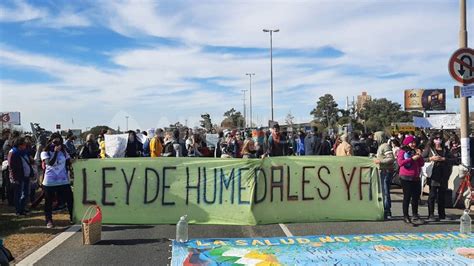 LEY DE HUMEDALES YA
LA SALUD NO SE